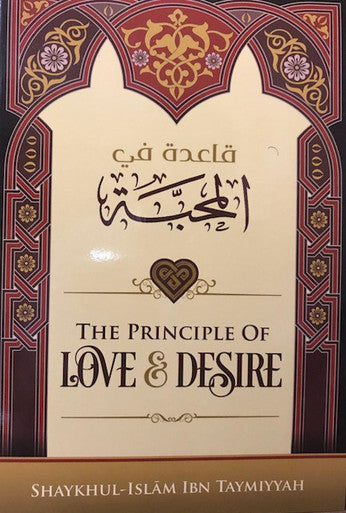 قاعدة في
المحبَّة
THE PRINCIPLE OF
LOVE & DESIRE
SHAYKHUL-ISLĀM IBN TAYMIYYAH